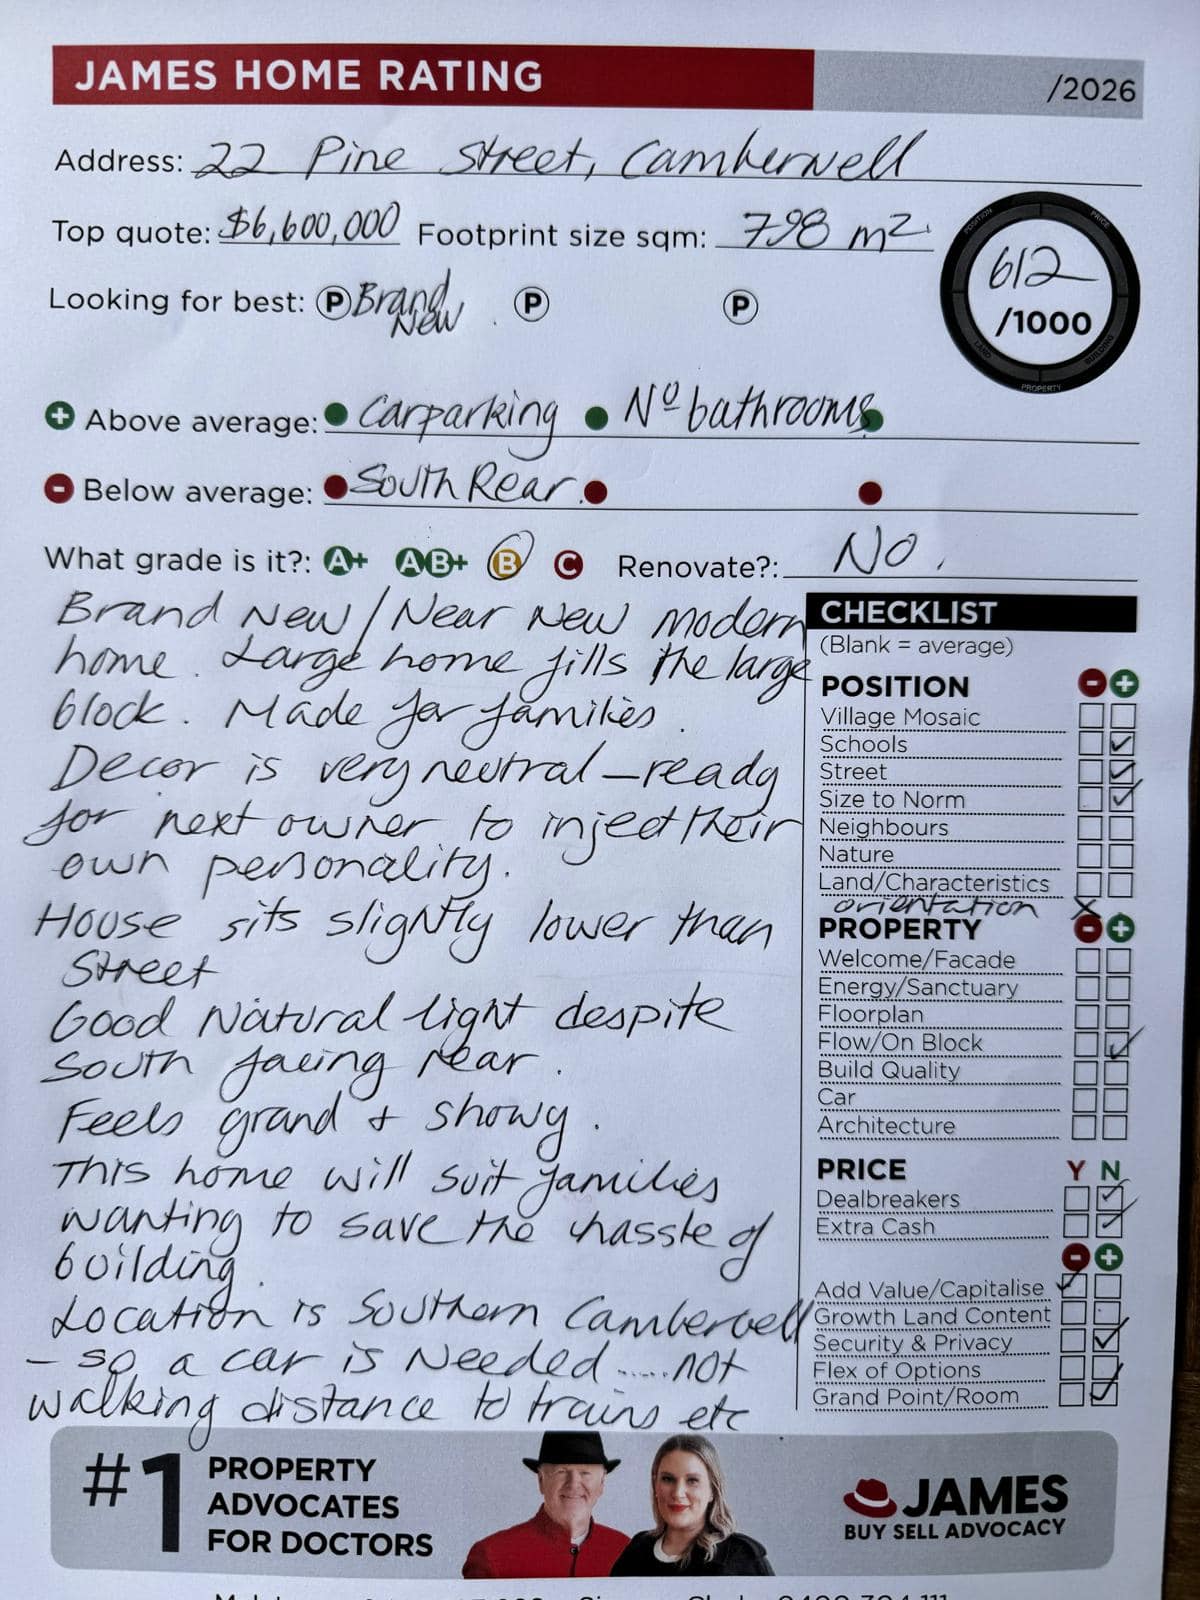 JAMES HOME RATING
/2026
Address: 22 Pine Street, Camberwell
Top quote: $6,600,000 Footprint size sqm: 798 m2
Looking for best: P Brand New P P
POSITION PRICE LAND BUILDING PROPERTY
612
/1000
+ Above average: Carparking Nº bathrooms
- Below average: South Rear
What grade is it?: A+ AB+ B C Renovate?: No.
Brand New / Near New modern
home. Large home fills the large
block. Made for families.
Decor is very neutral – ready
for next owner to inject their
own personality.
House sits slightly lower than
Street
Good Natural light despite
South facing rear.
Feels grand + showy.
This home will suit families
wanting to save the hassle of
building.
Location is Southern Camberwell
– so a car is Needed ..... not
walking distance to trains etc
CHECKLIST
(Blank = average)
POSITION - +
Village Mosaic
Schools ✓
Street ✓
Size to Norm ✓
Neighbours
Nature
Land/Characteristics
orientation X
PROPERTY - +
Welcome/Facade
Energy/Sanctuary
Floorplan
Flow/On Block ✓
Build Quality
Car
Architecture
PRICE Y N
Dealbreakers ✓
Extra Cash ✓
- +
Add Value/Capitalise ✓
Growth Land Content
Security & Privacy ✓
Flex of Options
Grand Point/Room ✓
#1 PROPERTY
ADVOCATES
FOR DOCTORS
JAMES
BUY SELL ADVOCACY